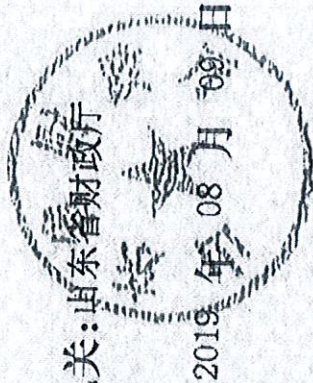 关:山东省财政厅
2019 年 08 月 09 日